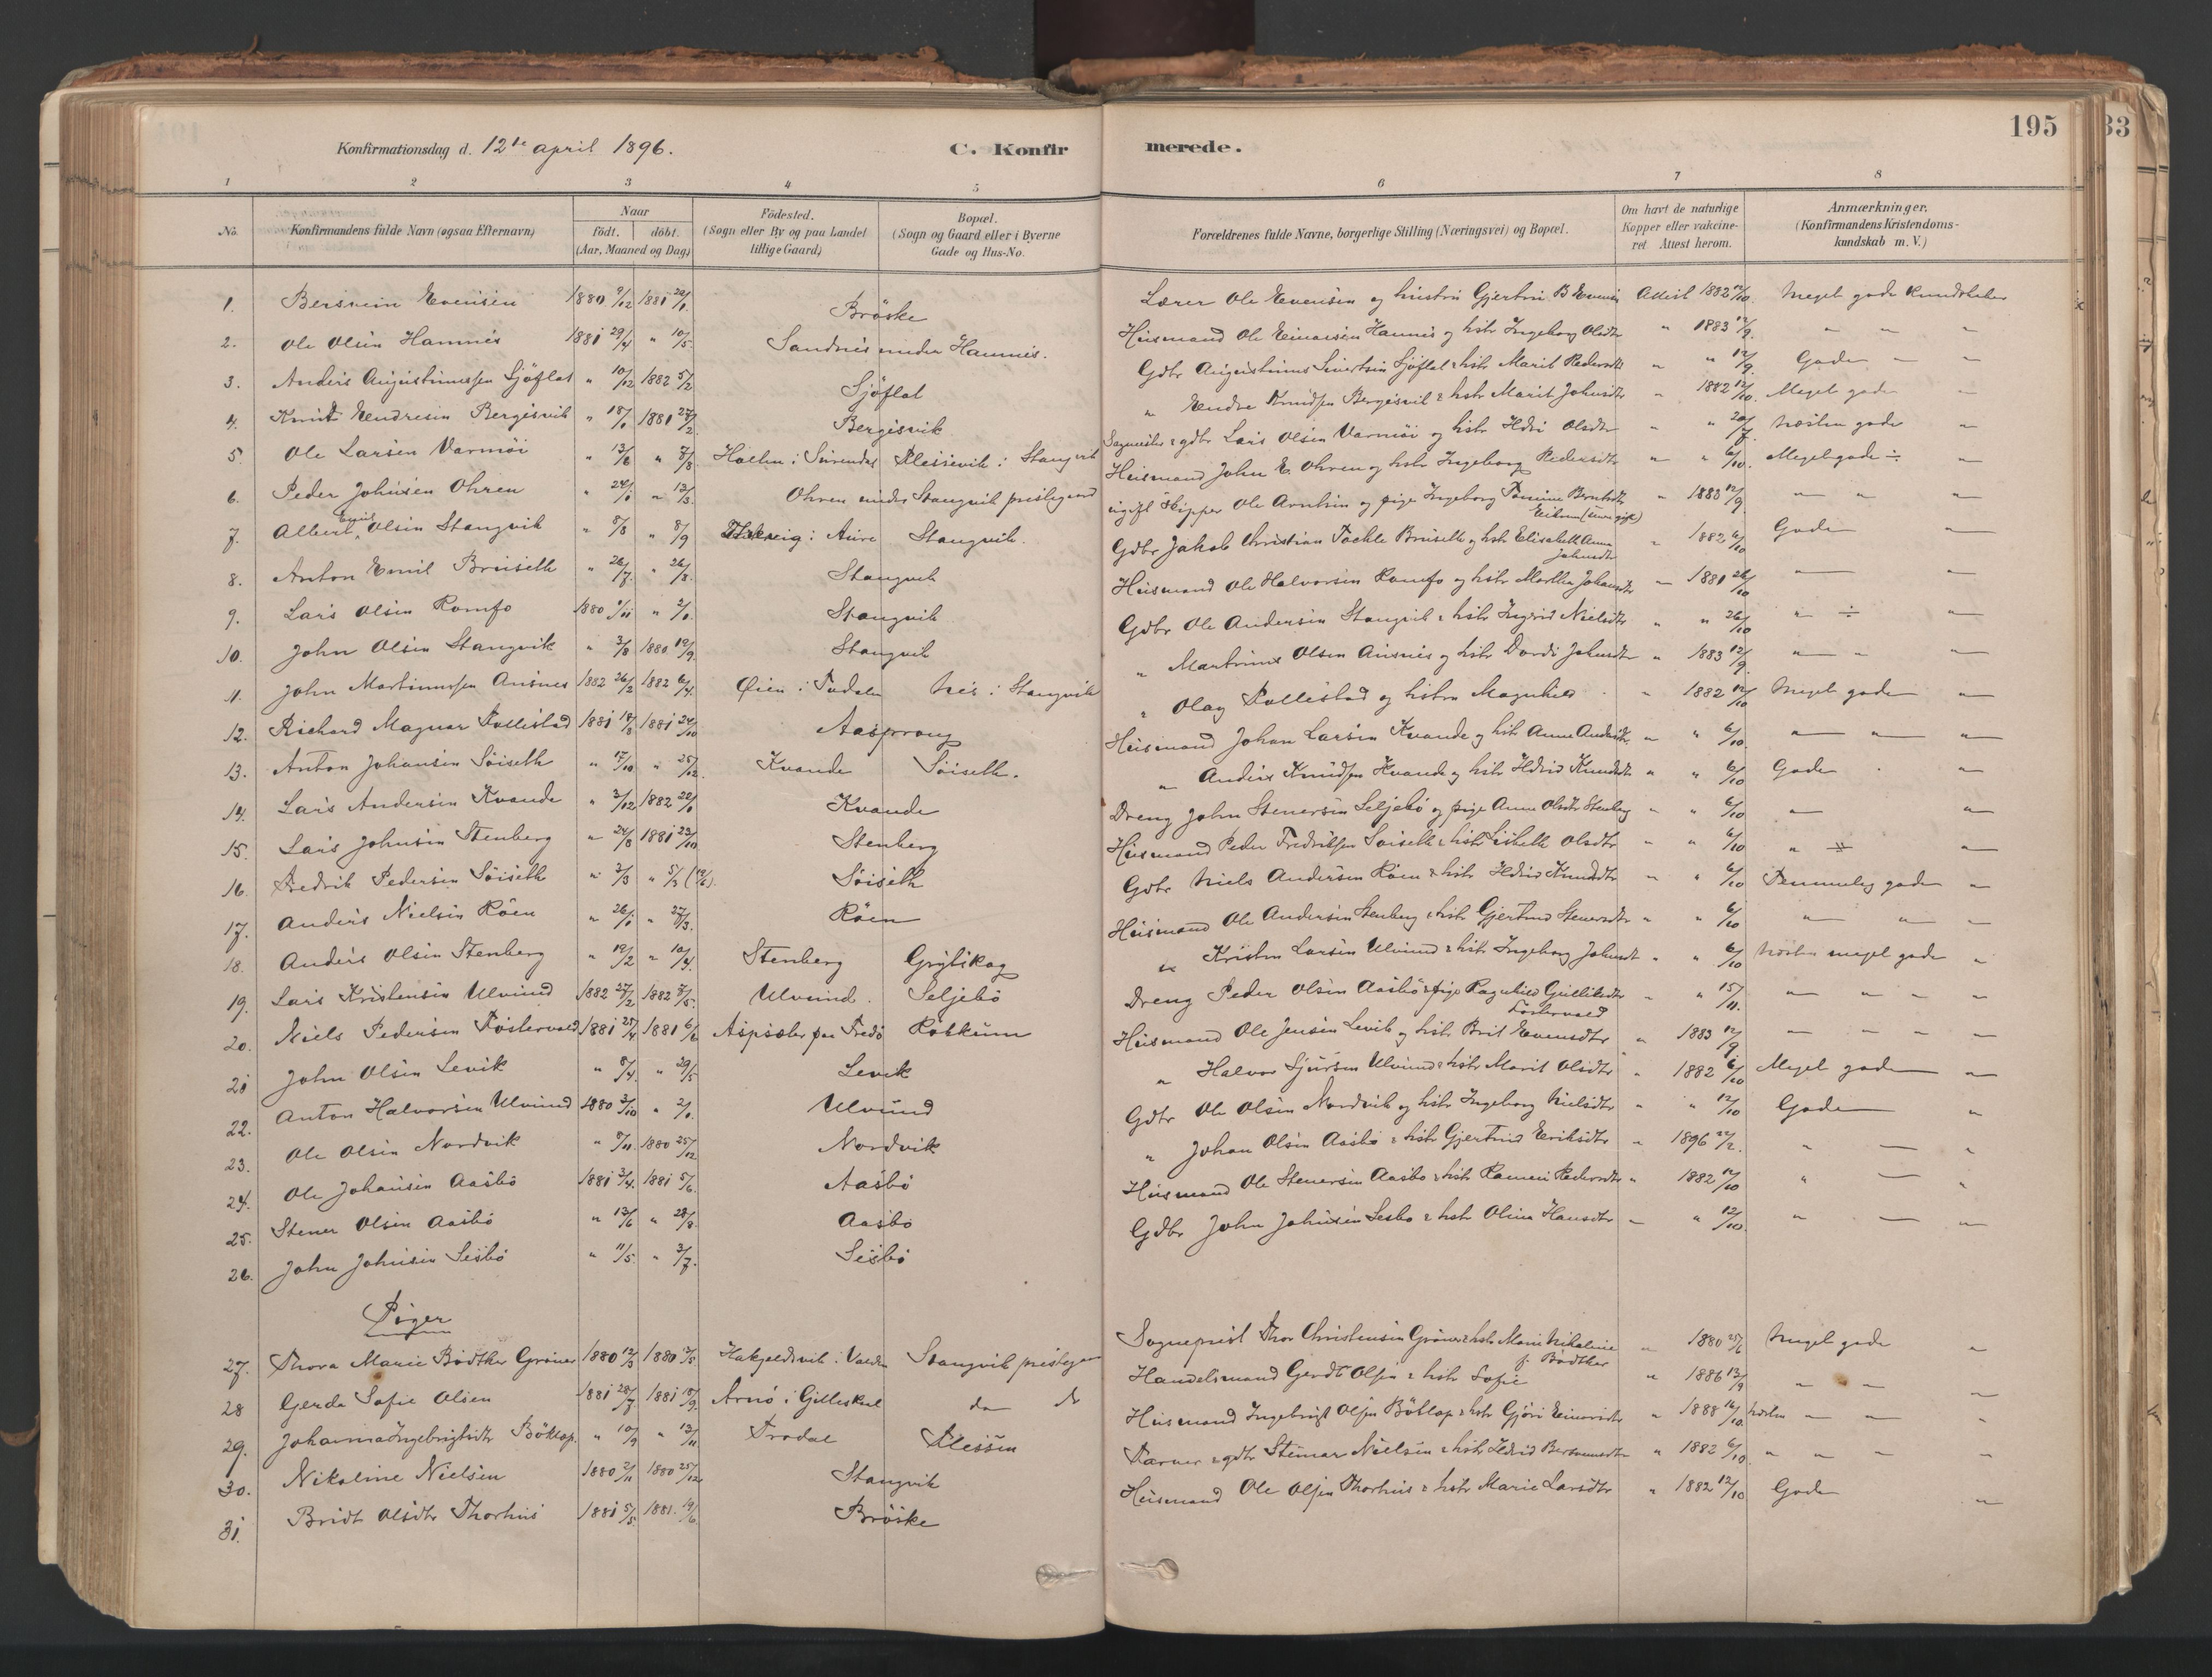 195
33
Konfirmationsdag d. 12te april 1896. C. Konfirmerede.
1 2 3 4 5 6 7 8
No. Konfirmandens fulde Navn (ogsaa Efternavn) Naar födt. döbt. (Aar, Maaned og Dag) Födested. (Sogn eller By og paa Landet tillige Gaard) Bopæl. (Sogn og Gaard eller i Byerne Gade og Hus-No. Forældrenes fulde Navne, borgerlige Stilling (Næringsvei) og Bopæl. Om havt de naturlige Kopper eller vakcineret Attest herom. Anmærkninger, (Konfirmandens Kristendomskundskab m. V.)
1. Bersvein Evensen 1880 9/12 1881 Bröske Lærer Ole Evensen og hustru Gjertru B. Attest 1882 12/10. Meget gode kundskaber
2. Ole Olsen Hamnes 1881 29/4 " 10/5. Sandnes under Hamnes. Husmand Ole Einarsen Hamnes og hstr Ingeborg Olsdtr " 1883 12/9. " " "
3. Anders Augustinussen Sjöflot " 10/12 1882 5/2 Sjöflot Gdbr Augustinus Sivertsen Sjöflot & hstr Marit Pedersdtr " " 12/9. Gode " "
4. Knut Endresen Bergesvik " 18/1 1881 27/2 Bergesvik " Endre Knudsen Bergesvik & hstr Marit Johnsdtr " 1882 12/10. Meget gode "
5. Ole Larsen Varmöi " 13/6 " 7/8 i Surendal i Stangvik & gdbr Lars Olsen Varmöi og hstr Olsdtr " " 20/7. Næsten gode "
6. Peder Johnsen Ohren " 24/1 " 13/3. Ohren under Stangvik prestegaard Husmand John E. Ohren og hstr Ingeborg Pedersdtr " " 6/10. Meget gode ÷ "
7. Albert Emil Olsen Stangvik " 8/8 " 8/9 i Aure Stangvik. ugift Skipper Ole Arntsen og pige Ingeborg " 1883 12/9. " " "
8. Anton Emil Bruseth " 26/7. " 26/8. Stangvik Gdbr Jakob Christian Bruseth og hstr Elisabeth Anna Johnsdtr " 1882 6/10 Gode "
9. Lars Olsen Romfo 1880 1/11 " 2/1. Stangvik Husmand Ole Halvorsen Romfo og hstr Marthe Johansdtr " 1881 26/10 " "
10. John Olsen Stangvik " 3/8 1880 19/9. Stangvik Gdbr Ole Andersen Stangvik & hstr Ingrid Nielsdtr " " 26/10 " ÷ "
11. John Martinussen Ausnes 1882 26/2 1882 6/4. Øien i Todalen Nes i Stangvik " Martinus Olsen Ausnes og hstr Dordi Johnsdtr " 1883 12/9. " " "
12. Richard Magnar Follestad 1881 18/8 1881 24/10 Aasprong " Olag Follestad og hstru Magnhild " 1882 12/10 Meget gode "
13. Anton Johansen Söiseth " 17/10 " 25/12. Kvande Söiseth. Husmand Johan Larsen Kvande og hstr Anne " " 6/10. " " "
14. Lars Andersen Kvande " 3/12 1882 22/1 Kvande " Anders Knudsen Kvande og hstr Knudsdtr " " 6/10 Gode "
15. Lars Johnsen Stenberg " 24/8 1881 23/10 Stenberg Dreng John Stenersen Seljebö og pige Anne Olsdtr Stenberg " " 6/10 " "
16. Fredrik Pedersen Söiseth " 2/3 " 5/3 Söiseth Husmand Peder Fredriksen Söiseth & hstr Lisbeth Olsdtr " " 6/10 " "
17. Anders Nielsen Röen " 26/1 " 27/3. Röen Gdbr Niels Andersen Röen & hstr Knudsdtr " " 6/10 Temmelig gode "
18. Anders Olsen Stenberg " 19/2 " 10/4. Stenberg Grytskog Husmand Ole Andersen Stenberg & hstr Gjertrud Stenersdtr " " 6/10 " " "
19. Lars Kristensen Ulvund 1882 27/2 1882 7/5. Ulvund. Seljebö " Kristen Larsen Ulvund & hstr Ingeborg Johnsdtr " " 6/10 Næsten meget gode "
20. Niels Pedersen Fostervold 1881 25/4 1881 6/6 paa Fredö Röttum Dreng Peder Olsen Aasbö & pige Ragnhild " " 15/11. " " " "
21 John Olsen Levik " 8/4. " 29/5 Levik Husmand Ole Jensen Levik og hstr Brit Evensdtr " 1883 12/9 " " " "
22. Anton Halvorsen Ulvund 1880 3/10 " 2/1. Ulvund " Halvor Sjursen Ulvund & hstr Marit Olsdtr " 1882 6/10 Meget gode "
23. Ole Olsen Nordvik " 8/11. 1880 25/12 Nordvik Gdbr Ole Olsen Nordvik og hstr Ingeborg Nielsdtr " " 12/10 Gode "
24. Ole Johansen Aasbö 1881 3/4. 1881 5/6. Aasbö " Johan Olsen Aasbö & hstr Gjertrud Eriksdtr " 1896 22/2. " " "
25. Stener Olsen Aasbö " 13/6 " 28/8. Aasbö Husmand Ole Stenersen Aasbö & hstr Pedersdtr " 1882 12/10 " " "
26. John Johnsen Sesbö " 11/5. " 3/7. Sesbö Gdbr John Johnsen Sesbö & hstr Olina Hansdtr " " 12/10. " " "
Piger
27. Thora Marie Bödtker Gröner 1880 12/3 1880 Stangvik prestegaard Sogneprest Thor Christensen Gröner & hstr Marie Nikoline f. Bödtker " 1880 25/6 Meget gode "
28 Gerda Sofie Olsen 1881 28/7 1881 18/9. Arnö i Gilleskal do do Handelsmand Gerdt Olsen & hstr Sofie " 1886 13/9 " " "
29. Johanna Ingebrigtsdtr Böklep. " 10/9 " 13/11 Trodal Husmand Ingebrigt Olsen Böklep & hstr Gjöri Einarsdtr " 1888 16/10. Næsten " " "
30. Nikoline Nielsen 1880 2/11 1880 25/12 Stangvik & gdbr Steinar Nielsen & hstr " 1882 6/10 " " " "
31. Bridt Olsdtr Thorhus 1881 5/5. 1881. 19/6. Bröske Husmand Ole Olsen Thorhus & hstr Marie Larsdtr " 1882 12/10 Gode "